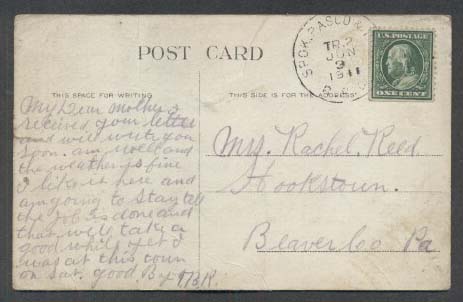 POST CARD
SPOK. PASCO &
TR. 2
JUN
9
1911
U.S. POSTAGE
ONE CENT
THIS SPACE FOR WRITING
THIS SIDE IS FOR THE ADDRESS
My Dear Mother I
received your letter
and will write you
soon. am well and
the weather is fine
I like it here and
am going to stay tell
the Job is done and
that will take a
good while yet I
was at this town
on Sat. good By
Mrs. Rachel Reed
Hookstown.
Beaver Co Pa